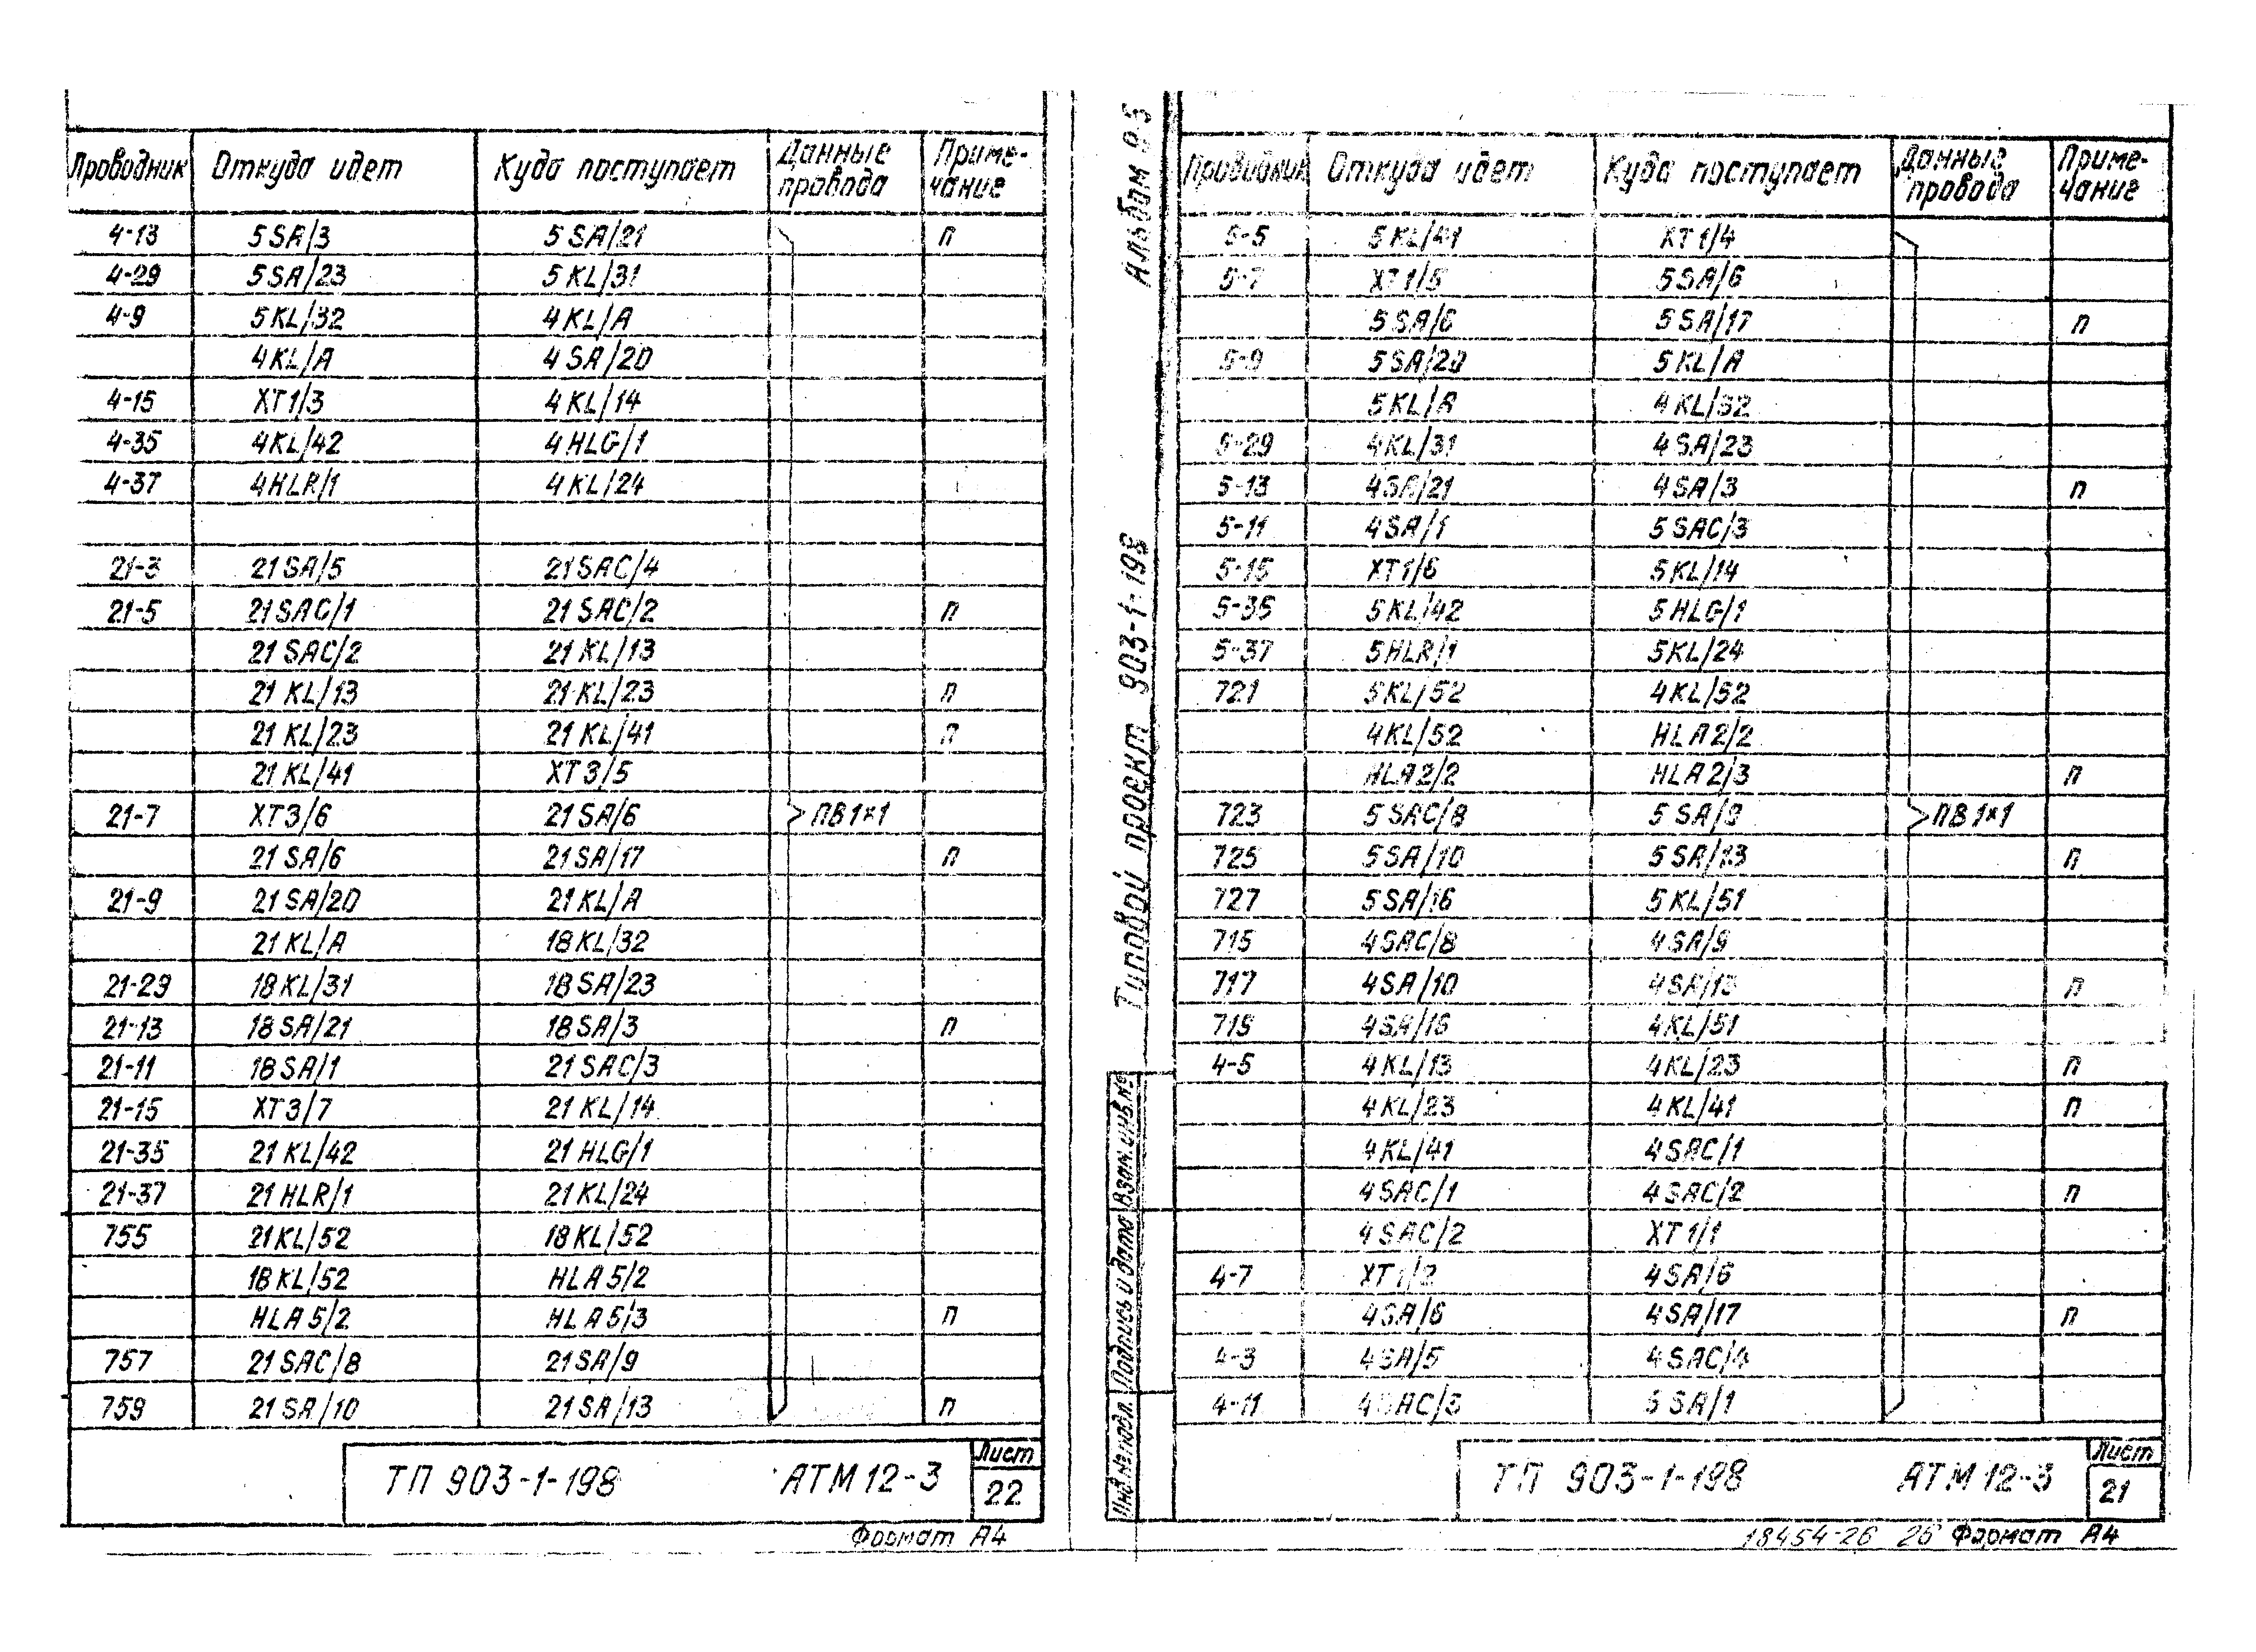 Проводник Откуда идет Куда поступает Данные провода Примечание
4-13 5SA/3 5SA/21 п
4-29 5SA/23 5KL/31
4-9 5KL/32 4KL/A
4KL/A 4SA/20
4-15 XT1/3 4KL/14
4-35 4KL/42 4HLG/1
4-37 4HLR/1 4KL/24
21-3 21SA/5 21SAC/4
21-5 21SAC/1 21SAC/2 п
21SAC/2 21KL/13
21KL/13 21KL/23 п
21KL/23 21KL/41 п
21KL/41 XT3/5
21-7 XT3/6 21SA/6 ПВ1×1
21SA/6 21SA/17 п
21-9 21SA/20 21KL/A
21KL/A 18KL/32
21-29 18KL/31 18SA/23
21-13 18SA/21 18SA/3 п
21-11 18SA/1 21SAC/3
21-15 XT3/7 21KL/14
21-35 21KL/42 21HLG/1
21-37 21HLR/1 21KL/24
755 21KL/52 18KL/52
18KL/52 HLA5/2
HLA5/2 HLA5/3 п
757 21SAC/8 21SA/9
759 21SA/10 21SA/13 п
ТП 903-1-198 АТМ12-3 Лист 22
Формат А4
Альбом 9.5
Типовой проект 903-1-198
Взам.инв.№
Подпись и дата
Инв.№подл.
Проводник Откуда идет Куда поступает Данные провода Примечание
5-5 5KL/41 XT1/4
5-7 XT1/5 5SA/6
5SA/6 5SA/17 п
5-9 5SA/20 5KL/A
5KL/A 4KL/32
5-29 4KL/31 4SA/23
5-13 4SA/21 4SA/3 п
5-11 4SA/1 5SAC/3
5-15 XT1/6 5KL/14
5-35 5KL/42 5HLG/1
5-37 5HLR/1 5KL/24
721 5KL/52 4KL/52
4KL/52 HLA2/2
HLA2/2 HLA2/3 п
723 5SAC/8 5SA/9 ПВ1×1
725 5SA/10 5SA/13 п
727 5SA/16 5KL/51
715 4SAC/8 4SA/9
717 4SA/10 4SA/13 п
719 4SA/16 4KL/51
4-5 4KL/13 4KL/23 п
4KL/23 4KL/41 п
4KL/41 4SAC/1
4SAC/1 4SAC/2 п
4SAC/2 XT1/1
4-7 XT1/2 4SA/6
4SA/6 4SA/17 п
4-3 4SA/5 4SAC/4
4-11 4SAC/3 5SA/1
ТП 903-1-198 АТМ12-3 Лист 21
18454-26 26 Формат А4